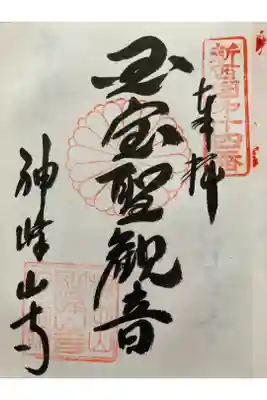 新西国第十四番
奉拝
国宝聖観音
神峰山寺